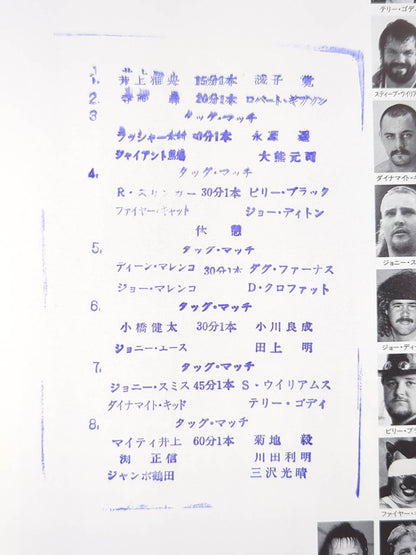 1. 井上雅央 15分1本 浅子 覚
2. 寺西 轟 20分1本 ロバート・ギブソン
3 タッグ・マッチ
ラッシャー木村 30分1本 永源 遥
ジャイアント馬場 大熊元司
4. タッグ・マッチ
R・スリンガー 30分1本 ビリー・ブラック
ファイヤー・キャット ジョー・ディトン
休憩
5. タッグ・マッチ
ディーン・マレンコ 30分1本 ダグ・ファーナス
ジョー・マレンコ D・クロファット
6. タッグ・マッチ
小橋健太 30分1本 小川良成
ジョニー・エース 田上 明
7. タッグ・マッチ
ジョニー・スミス 45分1本 S・ウイリアムス
ダイナマイト・キッド テリー・ゴディ
8. タッグ・マッチ
マイティ井上 60分1本 菊地 毅
渕 正信 川田利明
ジャンボ鶴田 三沢光晴
テリー・ゴデ
スティーブ・ウイリア
ダイナマイト・キ
ジョニー・ス
ジョー・ディ
ビリー・ブラ
ファイヤー・キ